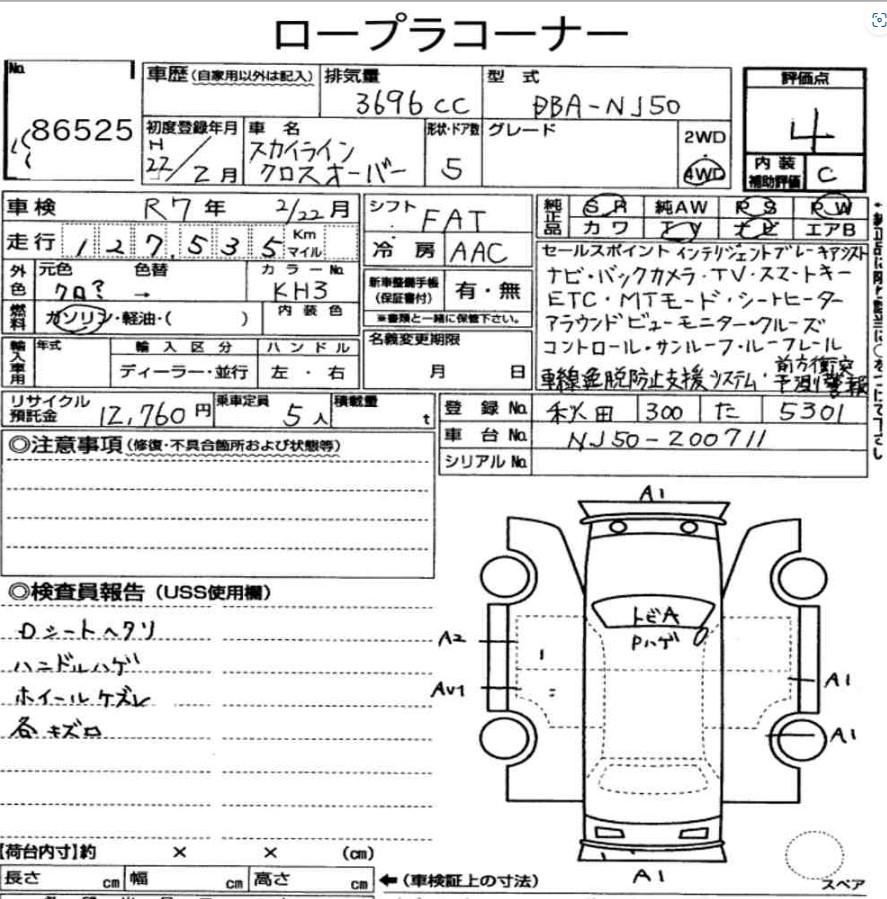 ロープラコーナー
No.
86525
車歴(自家用以外は記入)
排気量
3696 CC
型式
DBA-NJ50
評価点
4
初度登録年月
H
22/2月
車名
スカイライン
クロスオーバー
形状・ドア数
5
グレード
2WD
4WD
内装
補助評価
C
車検
R7年
2/22月
走行
127,535
Km
マイル
外色
元色
クロ?
色替
→
カラーNo.
KH3
燃料
ガソリン・軽油・( )
内装色
輸入車用
年式
輸入区分
ディーラー・並行
ハンドル
左・右
シフト
FAT
冷房
AAC
新車整備手帳
(保証書付)
有・無
※書類と一緒に保管下さい。
名義変更期限
月 日
純正品
SR
純AW
PS
PW
カワ
TV
ナビ
エアB
セールスポイント インテリジェントブレーキアシスト
ナビ・バックカメラ・TV・スマートキー
ETC・MTモード・シートヒーター
アラウンドビューモニター・クルーズ
コントロール・サンルーフ・ルーフレール
車線逸脱防止支援システム・前方衝突
予測警報
リサイクル
預託金
12,760円
乗車定員
5人
積載量
t
登録No.
秋田
300
た
5301
車台No.
NJ50-200711
シリアルNo.
◎注意事項(修復・不具合箇所および状態等)
◎検査員報告(USS使用欄)
Dシートヘタリ
ハンドルハゲ
ホイールケズレ
各キズ
A1
トビA
Pハゲ
A2
AU1
A1
A1
A1
スペア
【荷台内寸】約 × × (cm)
長さ cm
幅 cm
高さ cm
←(車検証上の寸法)